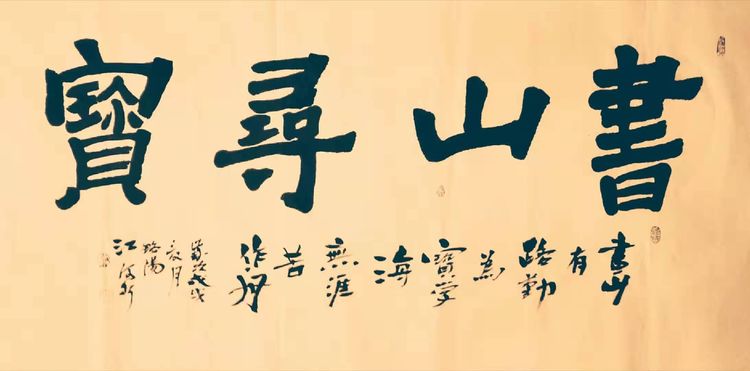 書山尋寶
書山
有
路勤
為
寶学
海
無涯
苦
作舟
歲次戊戌
夏月
洛陽
江